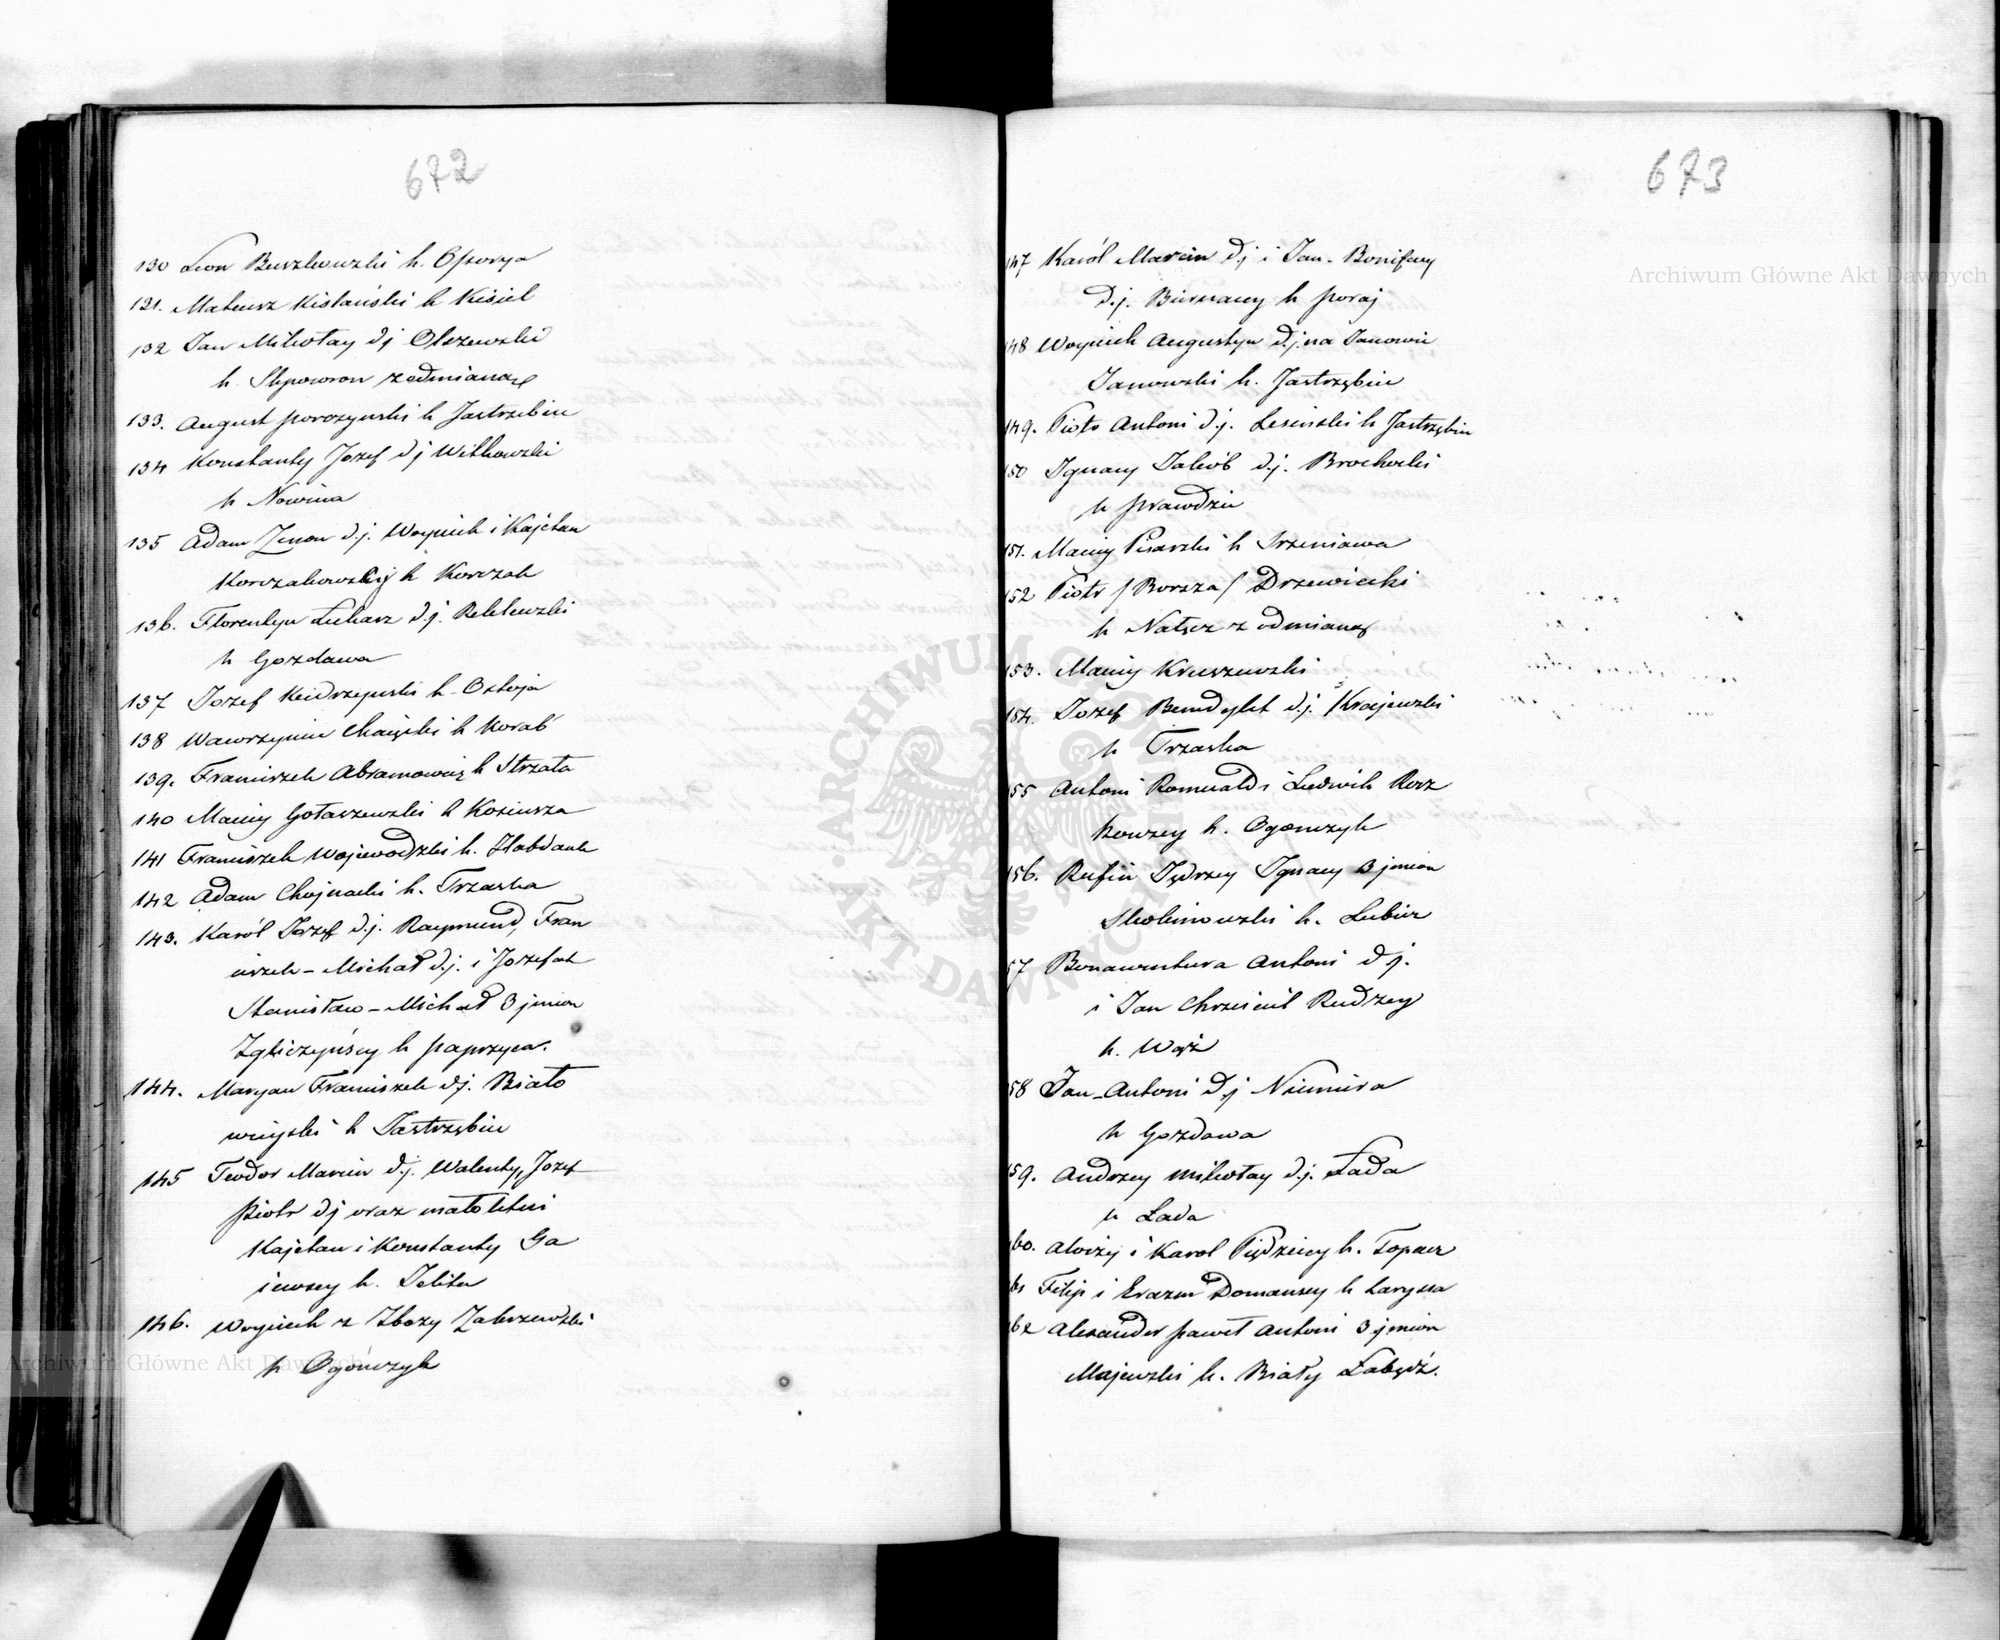 672
130 Leon Buszkowski h. Ossorya
131. Mateusz Kislański h Kisiel
132 Jan Mikołay dj Olszewski
h. Slepowron z odmianą
133. August Poroszynski h Jastrzebiec
134 Konstanty Jozef dj Witkowski
h Nowina
135 Adam Zenon d.j. Woyciech i Kajetan
Korczakowscy h Korczak
136. Florentyn Łukasz d.j. Reklewski
h Gozdawa
137 Jozef Kendrzynski h. Ostoja
138 Wawrzyniec h Korab
139. Franciszek Abramowicz h Strzała
140 Maciej Gołaszewski h Kosciesza
141 Franciszek Wojewodzki h. Habdank
142 Adam Chojnacki h. Trzaska
143. Karól Jozef d.j. Raymund, Fran
ciszek – Michał d.j. i Jozefat
Stanisław – Michał 3 jmion
Zgliczyńscy h Paprzyca.
144. Maryan Franciszek dj. Biało
wieyski h Jastrzębiec
145 Teodor Marcin d.j. Walenty, Jozef
Piotr dj oraz małoletni
Kajetan i Konstanty Ga
iewscy h. Jelita
146. Woyciech z Zboży Zakrzewski
h Ogończyk
673
147 Karól Marcin dj i Jan – Bonifacy
d.j. Biernaccy h Poraj
148 Woyciech Augustyn d.j. na Janowie
Janowski h. Jastrzębiec
149. Piotr Antoni d.j. Lesinski h Jastrzębiec
150 Ignacy Jakób d.j. Brochocki
h Prawdzic
151. Maciej Pisarski h Srzeniawa
152 Piotr /Borsza/ Drzewiecki
h Nałęcz z odmianą
153. Maciej Kruszewski
154. Jozef Benedykt d.j. Krajewski
h Trzaska
155 Antoni Romuald i Ludwik Rosz
kowscy h. Ogonczyk
156. Rufin Jędrzey Ignacy 3 jmion
Skolimowski h. Lubicz
57 Bonawentura Antoni dj.
i Jan Chrzciciel Rudzcy
h. Wąż
58 Jan – Antoni dj Niemira
h Gozdawa
59. Andrzey Mikołay d.j. Łada
h Łada
60. Aloizy i Karol h. Topacz
61 Filip i Erazm Domanscy h Laryssa
62 Alexander Paweł Antoni 3 jmion
Majewski h. Biały Łabędź.
Archiwum Główne Akt Dawnych
Archiwum Główne Akt Dawnych
ARCHIWUM GŁÓWNE AKT DAWNYCH